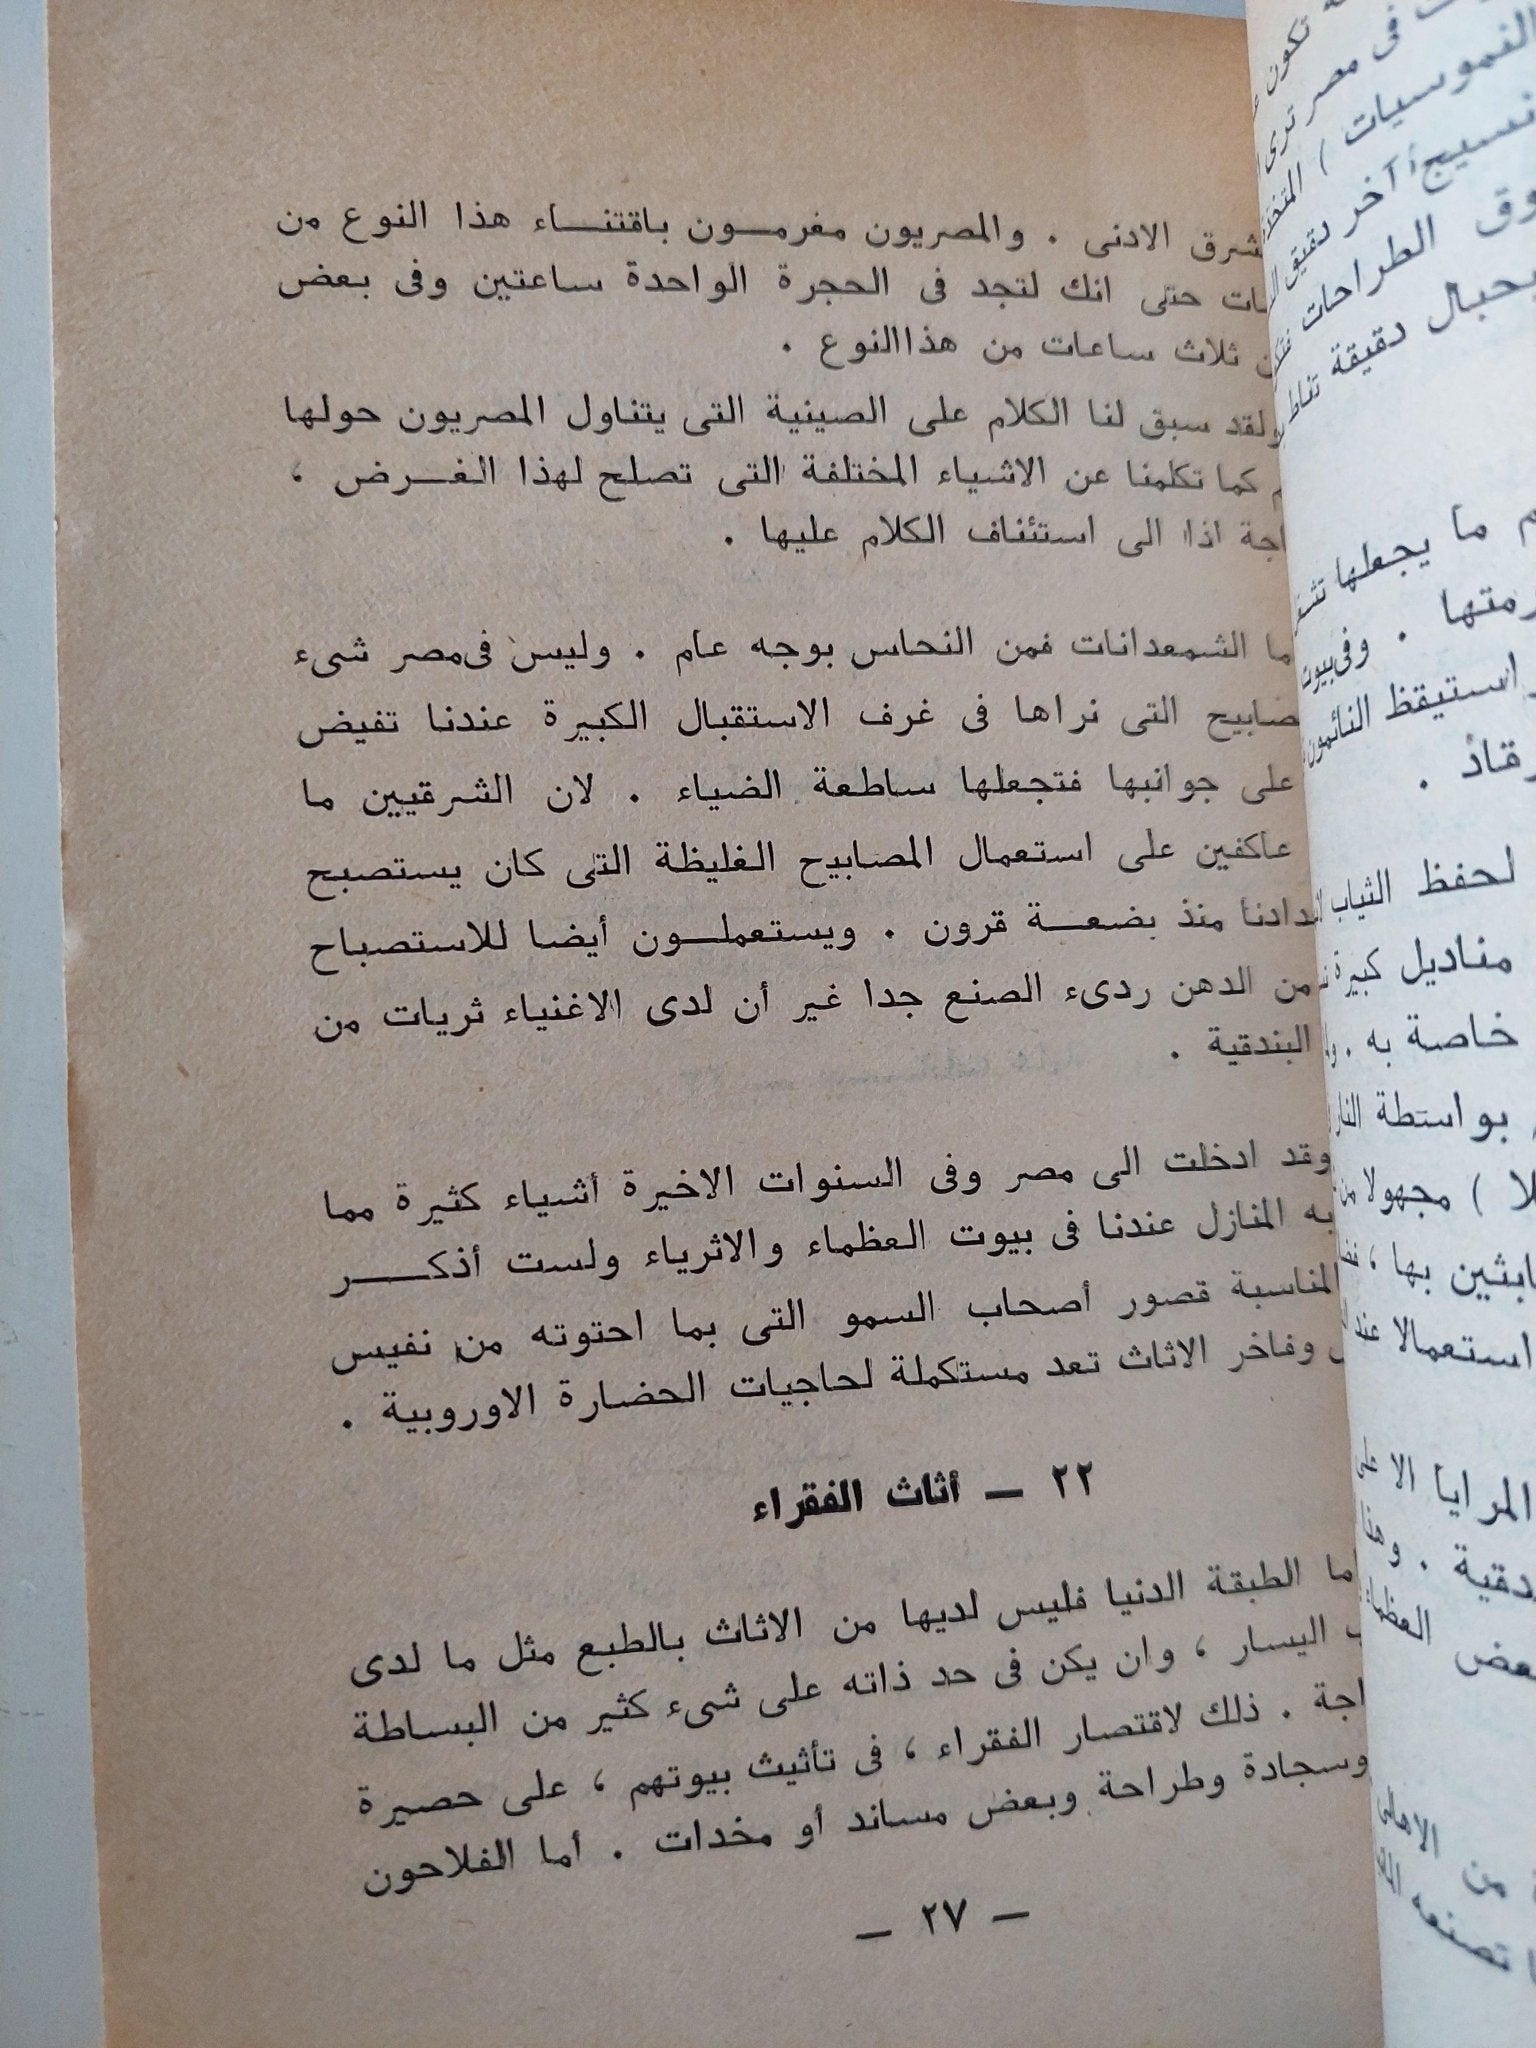 الادنى . والمصريون مغرمون باقتناء هذا النوع من
حتى انك لتجد فى الحجرة الواحدة ساعتين وفى بعض
ثلاث ساعات من هذا النوع .
ولقد سبق لنا الكلام على الصينية التى يتناول المصريون حولها
كما تكلمنا عن الاشياء المختلفة التى تصلح لهذا الغرض ،
اذا الى استئناف الكلام عليها .
الشمعدانات فمن النحاس بوجه عام . وليس فى مصر شىء
التى نراها فى غرف الاستقبال الكبيرة عندنا تفيض
على جوانبها فتجعلها ساطعة الضياء . لان الشرقيين ما
عاكفين على استعمال المصابيح الغليظة التى كان يستصبح
منذ بضعة قرون . ويستعملون أيضا للاستصباح
من الدهن ردىء الصنع جدا غير أن لدى الاغنياء ثريات من
البندقية .
وقد ادخلت الى مصر وفى السنوات الاخيرة أشياء كثيرة مما
به المنازل عندنا فى بيوت العظماء والاثرياء ولست أذكر
المناسبة قصور أصحاب السمو التى بما احتوته من نفيس
وفاخر الاثاث تعد مستكملة لحاجيات الحضارة الاوروبية .
٢٢ — أثاث الفقراء
الطبقة الدنيا فليس لديها من الاثاث بالطبع مثل ما لدى
اليسار ، وان يكن فى حد ذاته على شىء كثير من البساطة
. ذلك لاقتصار الفقراء ، فى تأثيث بيوتهم ، على حصيرة
وسجادة وطراحة وبعض مساند أو مخدات . أما الفلاحون
— ٢٧ —
تكون
فى مصر ترى
آخر دقيق
الطراحات
دقيقة
ما يجعلها
. وفى بيوت
استيقظ النائمون
.
لحفظ الثياب
مناديل كبيرة
خاصة به .
بواسطة النار
) مجهولا من
بها ،
استعمالا عند
المرايا الا على
. وهذا
من الاهالى
تصنعه